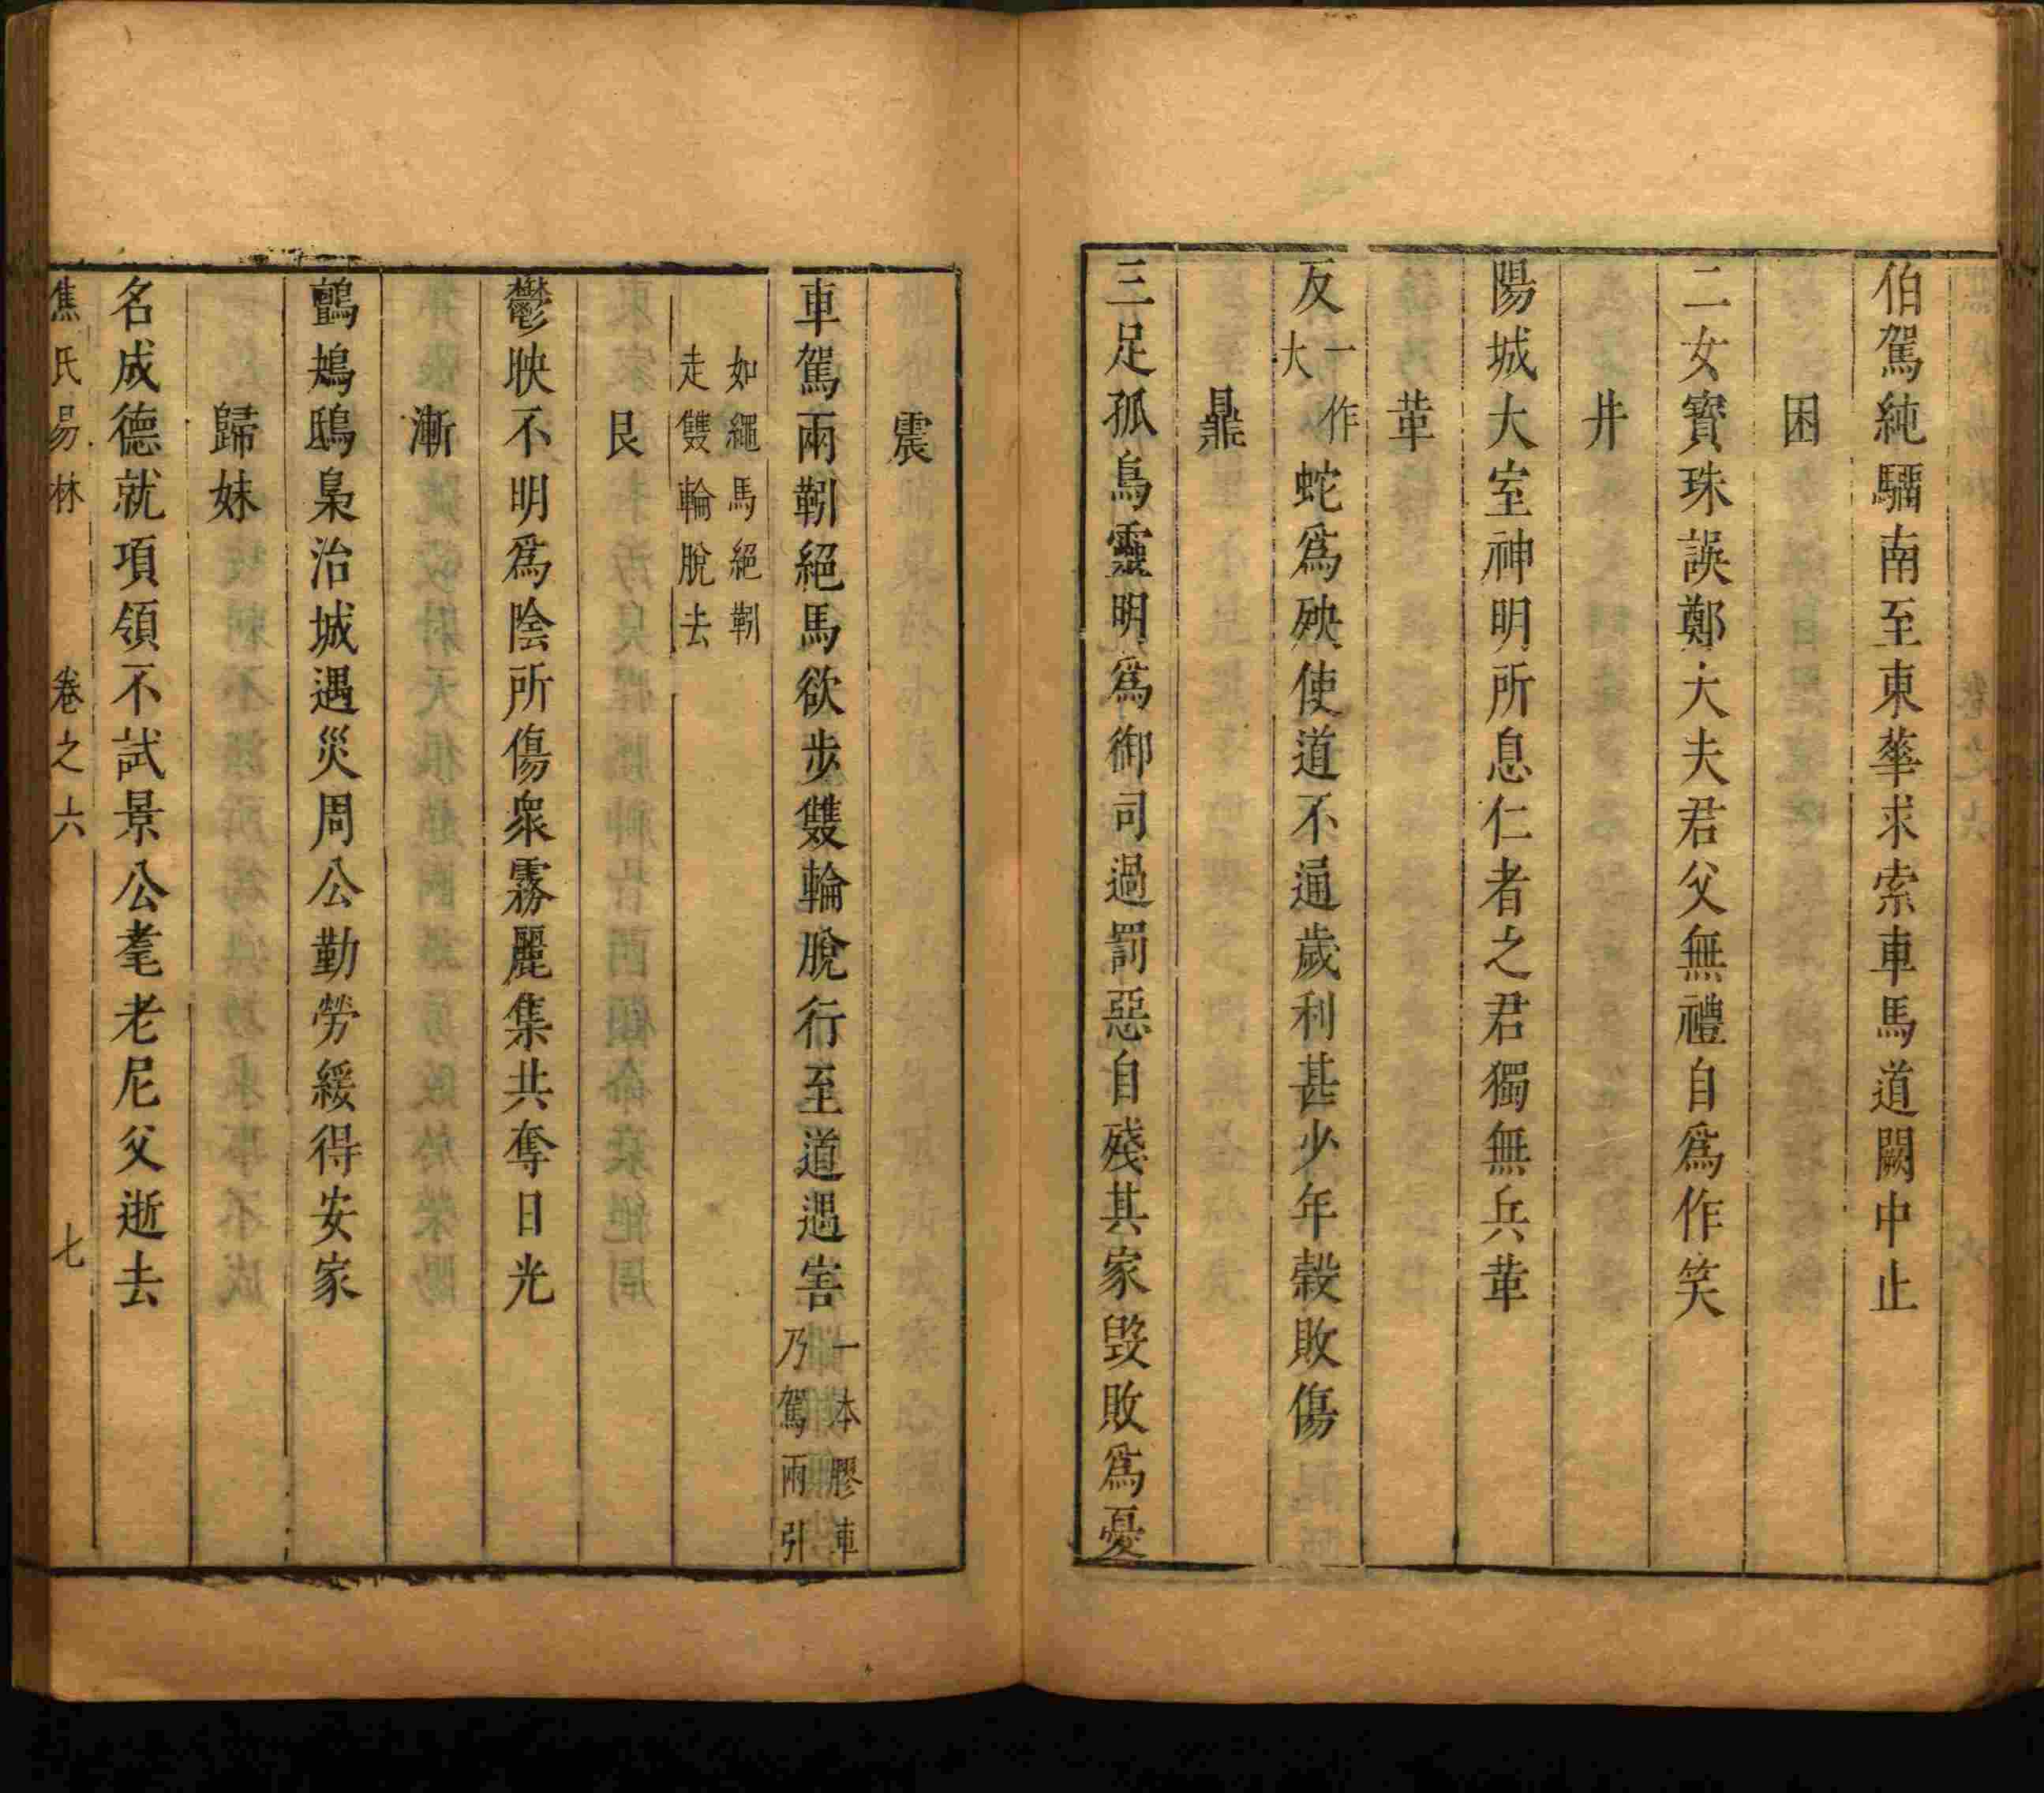 伯駕純騮南至東華求索車馬道闕中止
困
二女寳珠誤鄭大夫君父無禮自爲作笑
井
陽城大室神明所息仁者之君獨無兵革
革
反一作大蛇爲殃使道不通歲利甚少年穀敗傷
鼎
三足孤鳥靈明爲御司過罰惡自殘其家毀敗爲憂
震
車駕兩靷絕馬欲步雙輪脫行至道遇害一本膠車乃駕兩引
如繩馬絕靷走雙輪脫去
艮
鬱映不明爲陰所傷衆霧麗集共奪日光
漸
鸇鴆鴟梟治城遇災周公勤勞綏得安家
歸妹
名成德就項領不試景公耄老尼父逝去
焦氏易林 卷之六 七